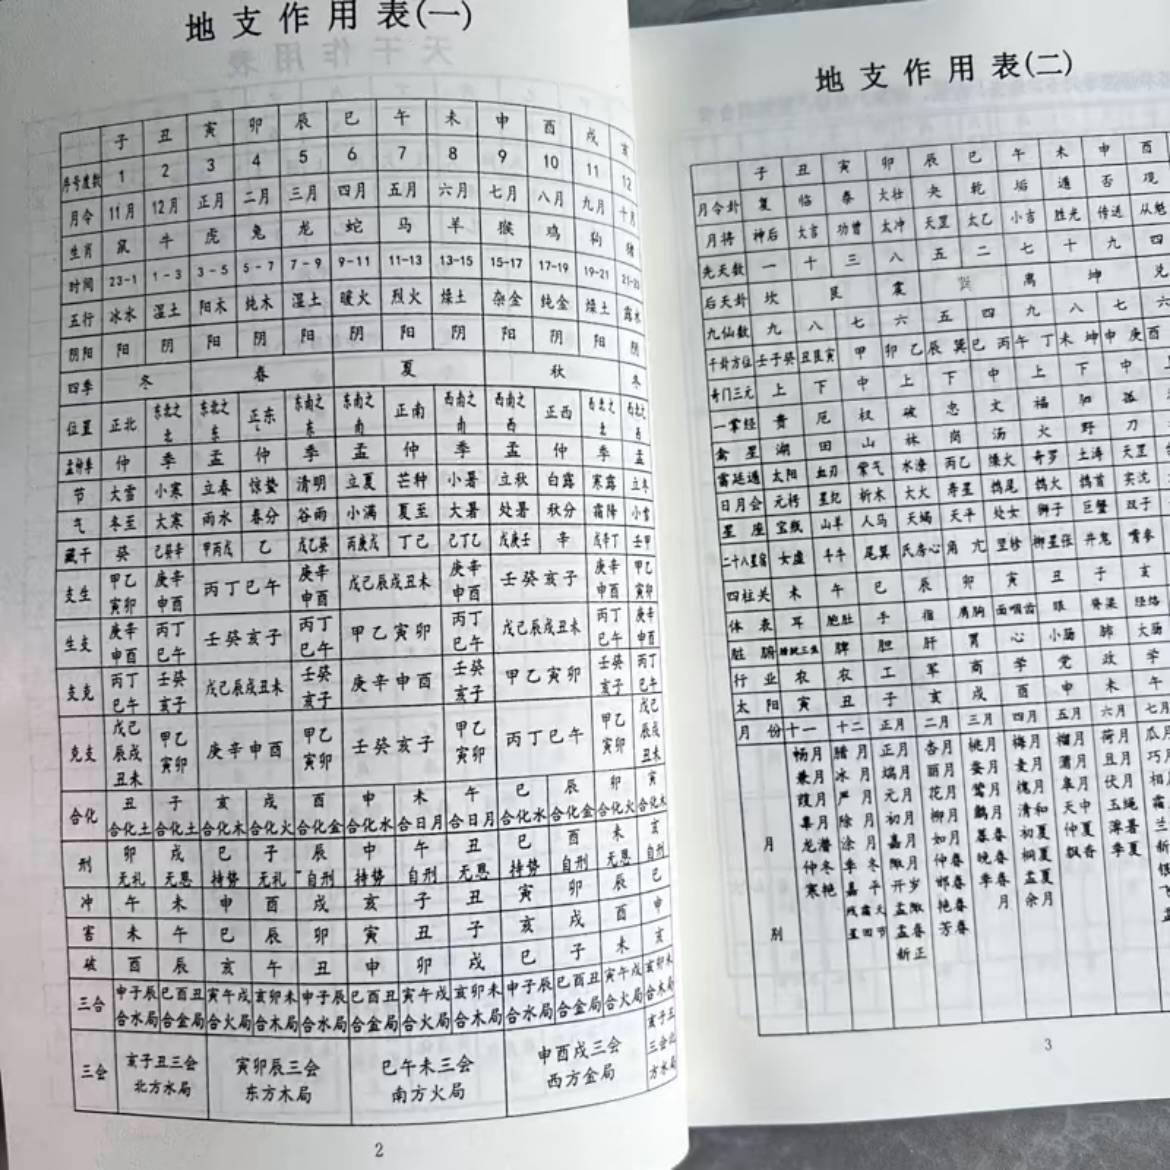 地支作用表(一)
子 丑 寅 卯 辰 巳 午 未 申 酉 戌 亥
序号度数 1 2 3 4 5 6 7 8 9 10 11 12
月令 11月 12月 正月 二月 三月 四月 五月 六月 七月 八月 九月 十月
生肖 鼠 牛 虎 兔 龙 蛇 马 羊 猴 鸡 狗 猪
时间 23-1 1-3 3-5 5-7 7-9 9-11 11-13 13-15 15-17 17-19 19-21 21-23
五行 冰水 湿土 阳木 纯木 湿土 暖火 烈火 燥土 杂金 纯金 燥土 露水
阴阳 阳 阴 阳 阴 阳 阴 阳 阴 阳 阴 阳 阴
四季 冬 春 夏 秋 冬
位置 正北 东北之北 东北之东 正东 东南之东 东南之南 正南 西南之南 西南之西 正西 西北之北 西北之西
孟仲季 仲 季 孟 仲 季 孟 仲 季 孟 仲 季 孟
节 大雪 小寒 立春 惊蛰 清明 立夏 芒种 小暑 立秋 白露 寒露 立冬
气 冬至 大寒 雨水 春分 谷雨 小满 夏至 大暑 处暑 秋分 霜降 小雪
藏干 癸 己癸辛 甲丙戊 乙 戊乙癸 丙庚戊 丁己 己丁乙 戊庚壬 辛 戊辛丁 壬甲
支生 甲乙寅卯 庚辛申酉 丙丁巳午 庚辛申酉 戊己辰戌丑未 庚辛申酉 壬癸亥子 庚辛申酉 甲乙寅卯
生支 庚辛申酉 丙丁巳午 壬癸亥子 丙丁巳午 甲乙寅卯 丙丁巳午 戊己辰戌丑未 丙丁巳午 庚辛申酉
支克 丙丁巳午 壬癸亥子 戊己辰戌丑未 壬癸亥子 庚辛申酉 壬癸亥子 甲乙寅卯 壬癸亥子 丙丁巳午
克支 戊己辰戌丑未 甲乙寅卯 庚辛申酉 甲乙寅卯 壬癸亥子 甲乙寅卯 丙丁巳午 甲乙寅卯 戊己辰戌丑未
合化 丑合化土 子合化土 亥合化木 戌合化火 酉合化金 申合化水 未合日月 午合日月 巳合化水 辰合化金 卯合化火 寅合化木
刑 卯无礼 戌无恩 巳持势 子无礼 辰自刑 申持势 午自刑 丑无恩 巳持势 酉自刑 未无恩 亥自刑
冲 午 未 申 酉 戌 亥 子 丑 寅 卯 辰 巳
害 未 午 巳 辰 卯 寅 丑 子 亥 戌 酉 申
破 酉 辰 亥 午 丑 申 卯 戌 巳 子 未 亥
三合 申子辰合水局 巳酉丑合金局 寅午戌合火局 亥卯未合木局 申子辰合水局 巳酉丑合金局 寅午戌合火局 亥卯未合木局 申子辰合水局 巳酉丑合金局 寅午戌合火局 亥卯未合木局
三会 亥子丑三会北方水局 寅卯辰三会东方木局 巳午未三会南方火局 申酉戌三会西方金局 亥子丑三会北方水局
2
地支作用表(二)
子 丑 寅 卯 辰 巳 午 未 申 酉
月令卦 复 临 泰 大壮 夬 乾 垢 遁 否 观
月将 神后 大吉 功曾 太冲 天罡 太乙 小吉 胜光 传送 从魁
先天数 一 十 三 八 五 二 七 十 九 四
后天卦 坎 艮 震 巽 离 坤 兑
九仙数 九 八 七 六 五 四 九 八 七 六
干卦方位 壬子癸 丑艮寅 甲 卯 乙辰 巽巳 丙午 丁未 坤申 庚酉
奇门三元 上 下 中 上 下 中 上 下 中 上
一掌经 贵 厄 权 破 忠 文 福 驲 孤
禽星 湖 田 山 林 岗 汤 火 野 刀
雷霆通 太阳 血刃 紫气 水潦 丙乙 燥火 奇罗 土涛 天罡
日月会 元枵 星纪 析木 大火 寿星 鹑尾 鹑火 鹑首 实沈
星座 宝瓶 山羊 人马 天蝎 天平 处女 狮子 巨蟹 双子
二十八星宿 女虚 斗牛 尾箕 氐房心 角亢 翌轸 柳星张 井鬼 觜参
四柱关 未 午 巳 辰 卯 寅 丑 子 亥
体表 耳 胞肚 手 指 肩胸 面咽齿 眼 脊梁 经络
脏腑 膀胱三焦 脾 胆 肝 胃 心 小肠 肺 大肠
行业 农 农 工 军 商 学 党 政 学
太阳 寅 丑 子 亥 戌 酉 申 未 午
月份 十一 十二 正月 二月 三月 四月 五月 六月 七月
月别
畅月 腊月 正月 杏月 桃月 梅月 榴月 荷月 瓜月
兼月 冰月 端月 丽月 蚕月 麦月 蒲月 且月 巧月
葭月 严月 元月 花月 莺月 槐月 皋月 伏月 相
辜月 除月 初月 柳月 鹇月 清和 天中 玉绳 霜
龙潜 涂月 嘉月 如月 暮春 初夏 仲夏 溽暑 兰
仲冬 季冬 陬月 仲春 晚春 桐夏 飘香 季夏 新
寒艳 嘉平 开岁 邯春 季春 孟夏 银
残霜天 孟陬 艳春 月 余月 飞
星回节 孟春 芳春 孟
新正
3